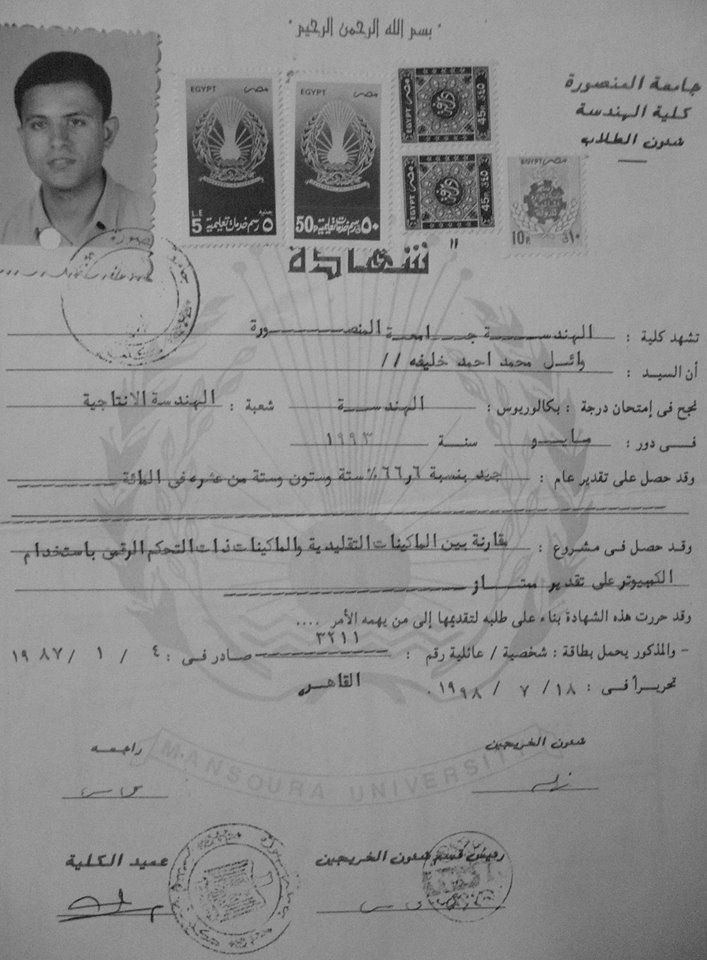 " بسم الله الرحمن الرحيم "
جامعة المنصورة
كلية الهندسة
شئون الطلاب
EGYPT مصر
5 L.E رسم خدمات تعليمية ٥ جنيه
EGYPT مصر
50P رسم خدمات تعليمية ٥٠
EGYPT مصر 45
EGYPT مصر 45
EGYPT مصر
10P ١٠
شهادة "
تشهد كلية : الهندســـة جـامعـة المنصــورة
أن السيد : وائـل محمد احمد خليفه //
نجح فى إمتحان درجة : بكالوريوس : الهندســة شعبة : الهندسة الانتاجية
فـــى دور : مـايــو سنة ١٩٩٣
وقد حصل على تقدير عام : جيد بنسبة ٦٦,٦٪ ستة وستون وستة من عشره فى المائة
وقد حصل فى مشروع : مقارنة بين الماكينات التقليدية والماكينات ذات التحكم الرقمى باستخدام
الكمبيوتر على تقدير ممتـــاز
وقد حررت هذه الشهادة بناء على طلبه لتقديمها إلى من يهمه الأمر ....
- والمذكور يحمل بطاقة : شخصية / عائلية رقم : ٣٢١١ صادر فى : ٤ / ١ / ١٩٨٧
القاهره
تحريرأ فى : ١٨ / ٧ / ١٩٩٨ .
شئون الخريجين
راجعه
MANSOURA UNIVERSITY
رئيس قسم شئون الخريجين
عميد الكلية